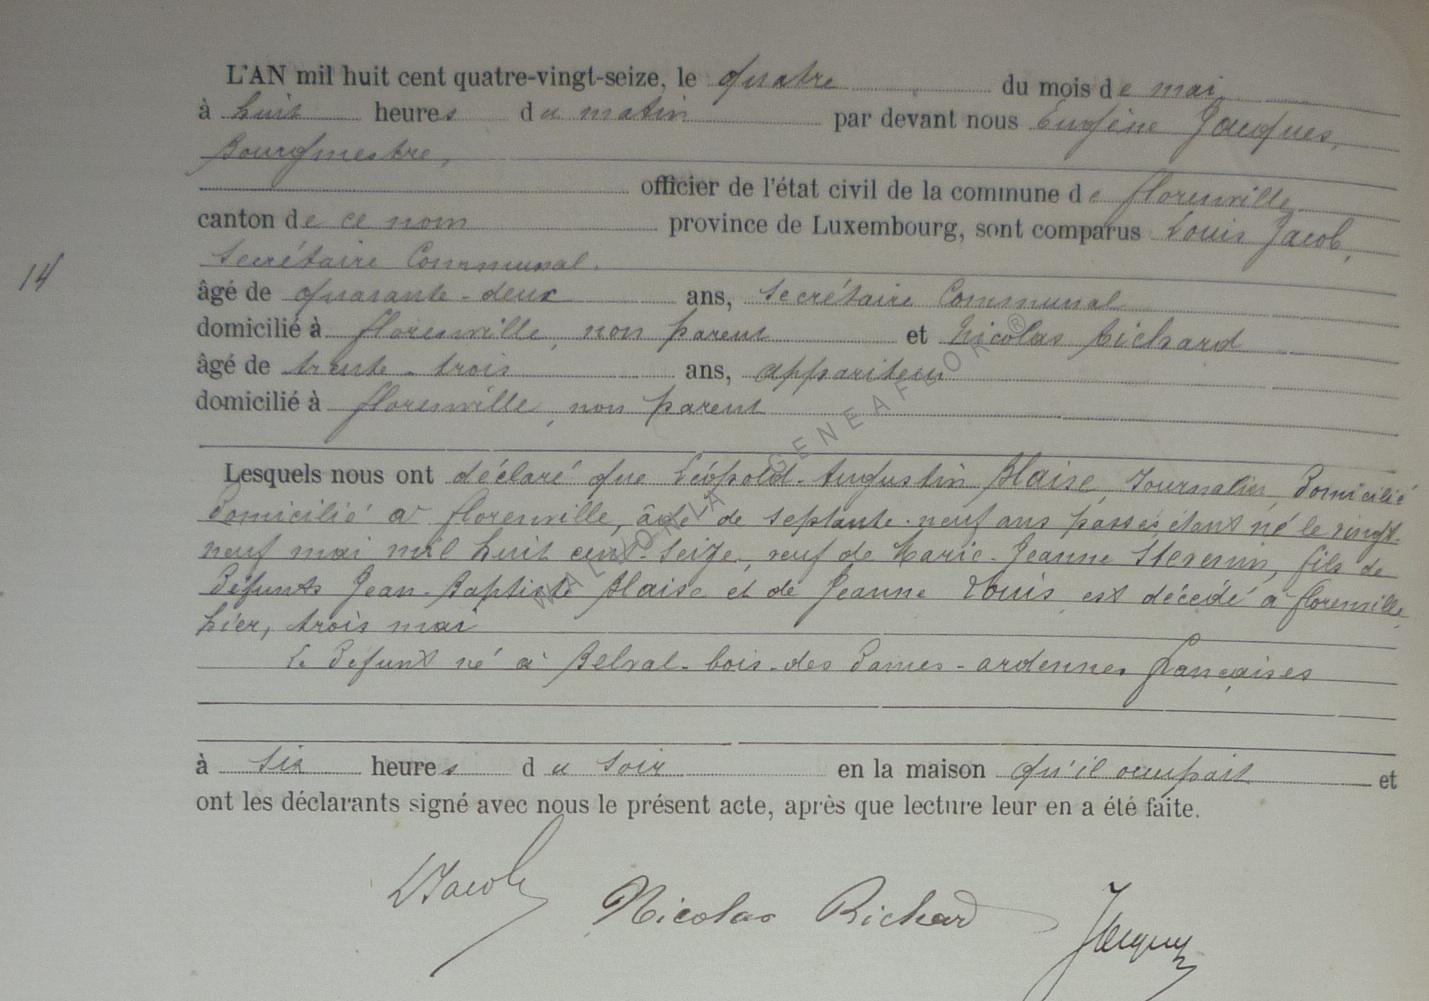 L'AN mil huit cent quatre-vingt-seize, le quatre du mois de mai
à huit heures du matin par devant nous Eugène Jacques,
Bourgmestre,
officier de l'état civil de la commune de florenville
canton de ce nom province de Luxembourg, sont comparus Louis Jacob,
Secrétaire Communal.
14
âgé de quarante-deux ans, Secrétaire Communal
domicilié à florenville, non parent et Nicolas Richard
âgé de trente-trois ans, appariteur
domicilié à florenville, non parent
Lesquels nous ont déclaré que Léopold-Augustin Blaise, Journalier, Domicilié
Domicilié à florenville, âgé de septante-neuf ans passés étant né le vingt-
neuf mai mil huit cent seize, veuf de Marie-Jeanne Stevenin, fils de
Défunts Jean-Baptiste Blaise et de Jeanne Louis est décédé à florenville,
hier, trois mai
Le Défunt né à Belval-bois-des Dames-ardennes françaises
à six heures du soir en la maison qu'il occupait et
ont les déclarants signé avec nous le présent acte, après que lecture leur en a été faite.
LJacob Nicolas Richard Jacques
WALLONIA GENEAFLOR®